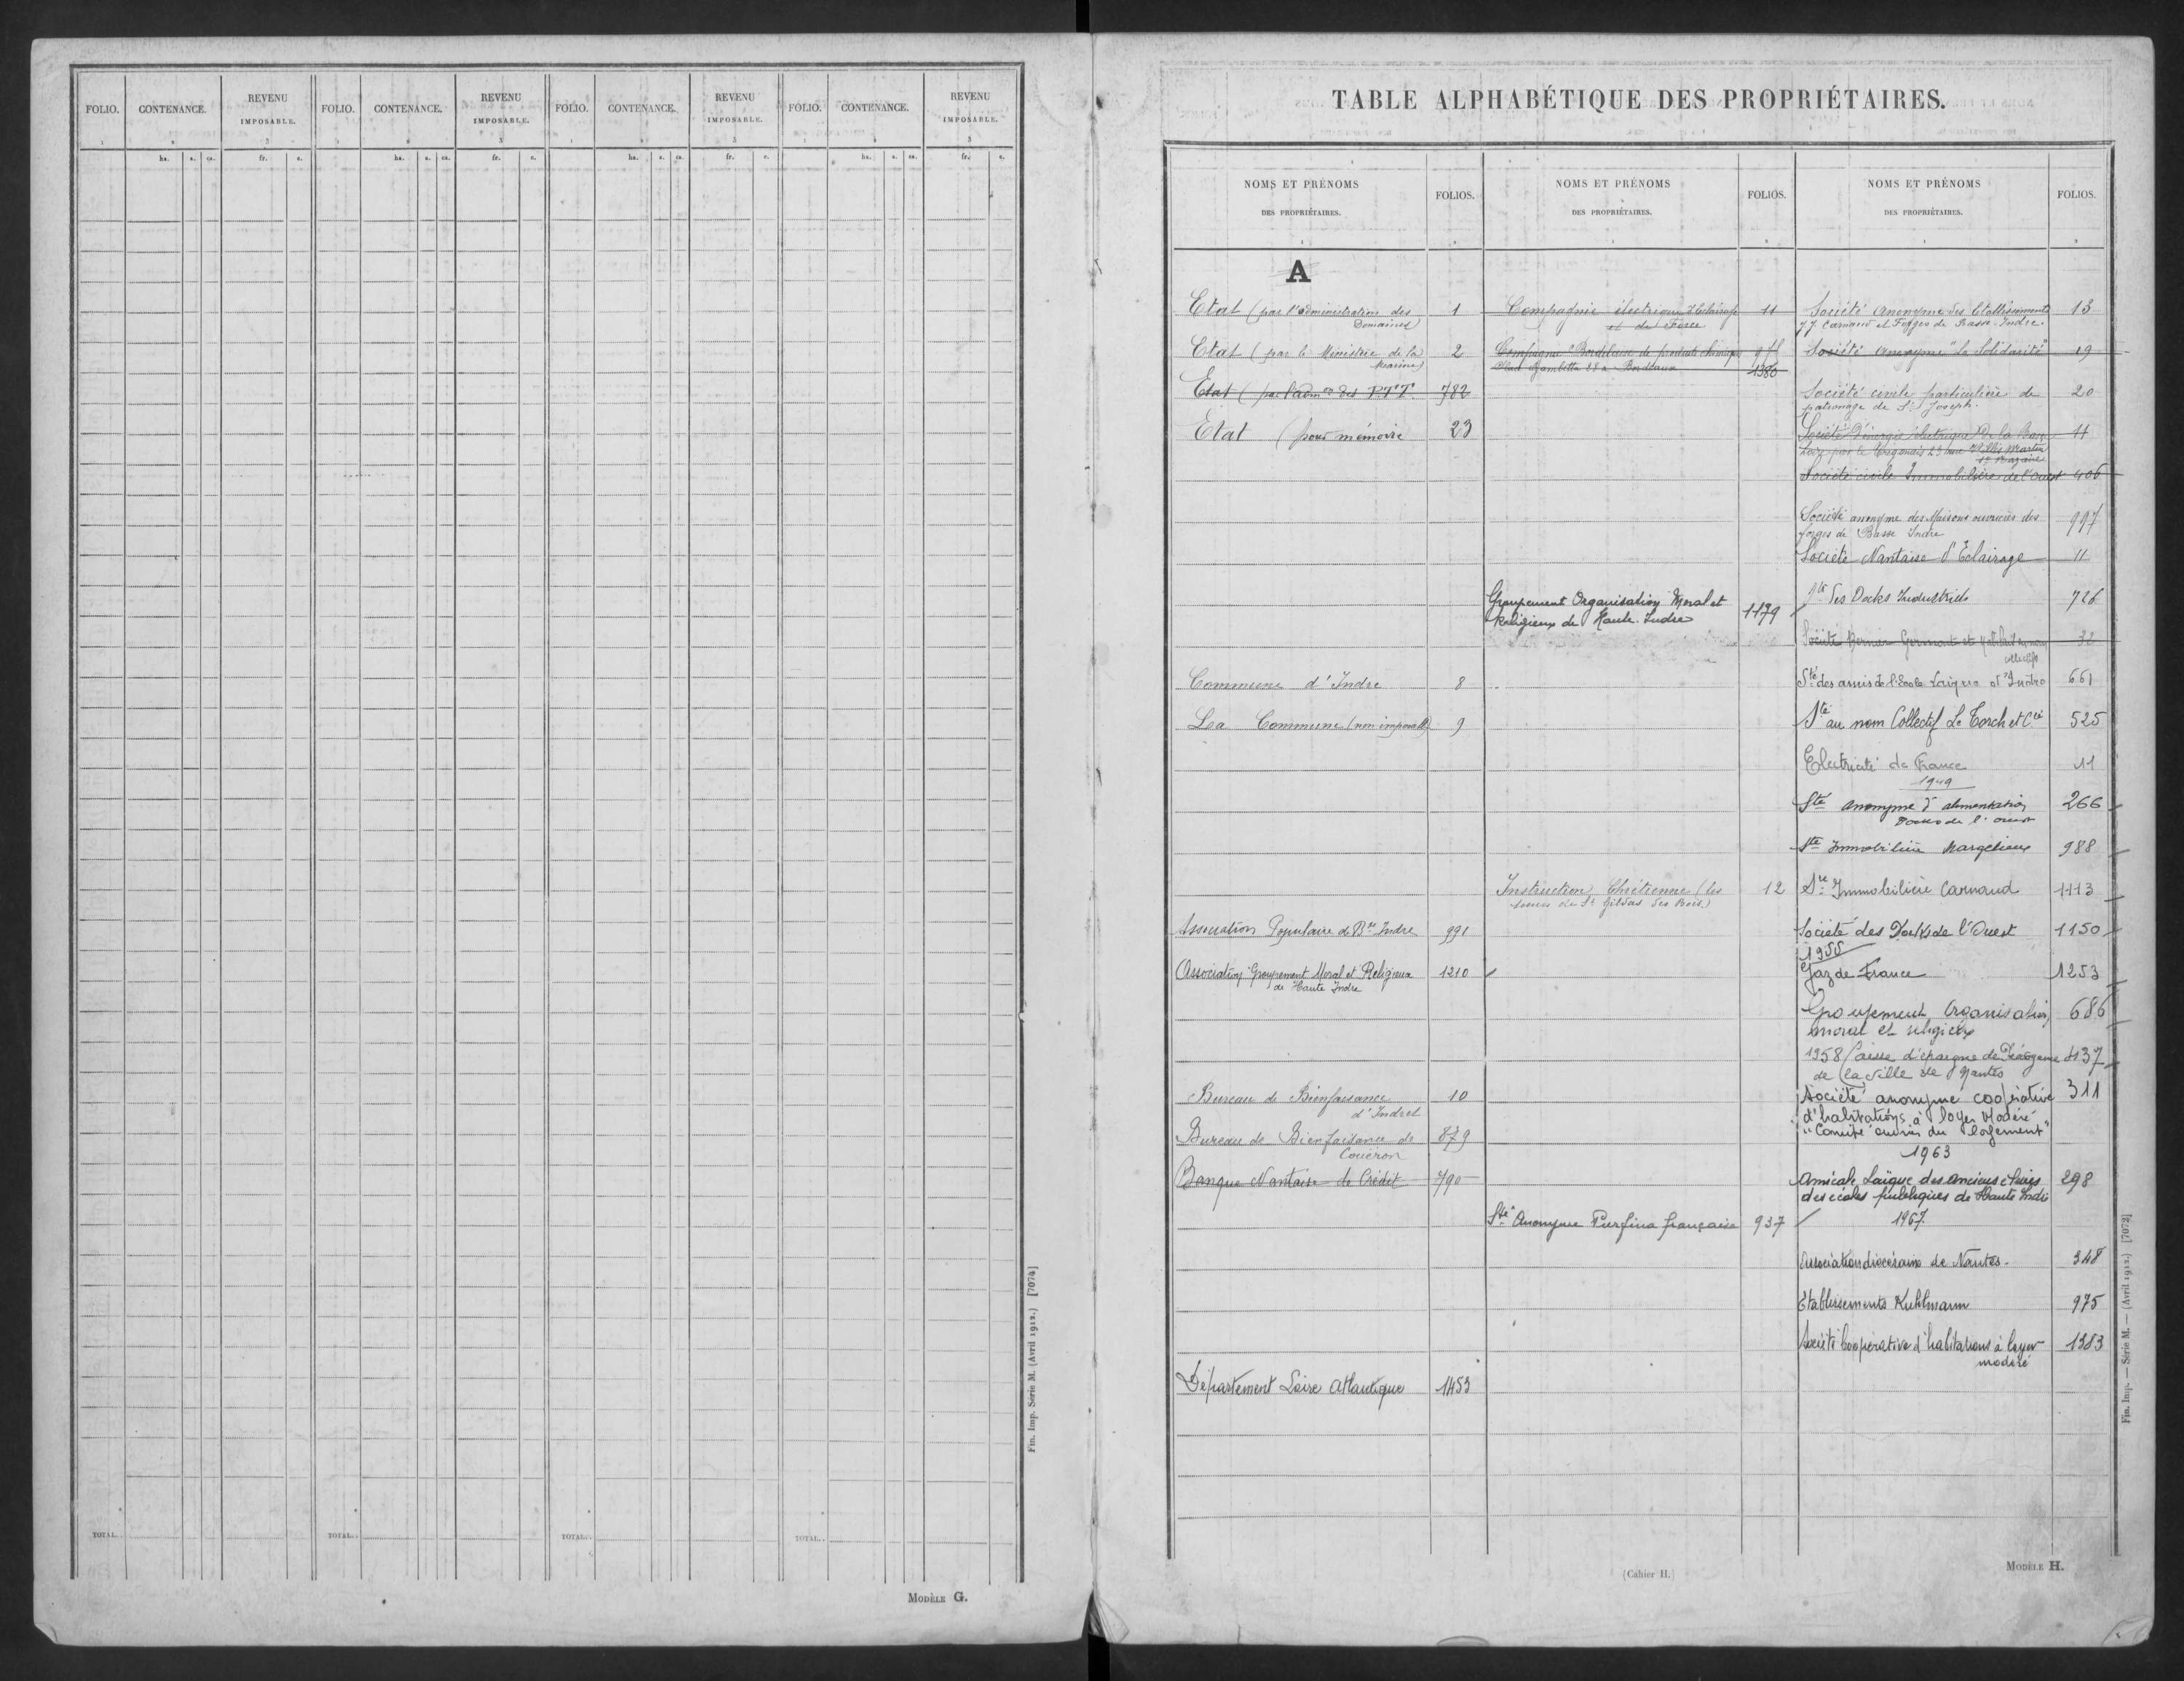 FOLIO. CONTENANCE. REVENU IMPOSABLE. FOLIO. CONTENANCE. REVENU IMPOSABLE. FOLIO. CONTENANCE. REVENU IMPOSABLE. FOLIO. CONTENANCE. REVENU IMPOSABLE.
1 2 3 1 2 3 1 2 3 1 2 3
ha. a. ca. fr. c. ha. a. ca. fr. c. ha. a. ca. fr. c. ha. a. ca. fr. c.
TOTAL. TOTAL. TOTAL. TOTAL.
Fin. Imp. Série M. (Avril 1912.) [7074]
MODÈLE G.
TABLE ALPHABÉTIQUE DES PROPRIÉTAIRES.
NOMS ET PRÉNOMS
DES PROPRIÉTAIRES.
FOLIOS.
A
Etat (par l'administration des 1
Domaines)
Etat (par le Ministère de la 2
Marine)
Etat (par l'adm on des P.T.T. 782
Etat (pour mémoire 23
Commune d'Indre 8
La Commune (non imposable) 9
Association Populaire de Bse Indre 991
Association Groupement Moral et Religieux 1210
de Haute Indre
Bureau de Bienfaisance 10
d'Indret
Bureau de Bienfaisance de 879
Couëron
Banque Nantaise de Crédit 790
Département Loire Atlantique 1453
NOMS ET PRÉNOMS
DES PROPRIÉTAIRES.
FOLIOS.
Compagnie électrique d'Eclairage 11
et de Force
Compagnie Bordelaise de produits chimiques
Gambetta Bordeaux 1380
Groupement Organisation Moral et 1179
Religieux de Haute-Indre
Instruction Chrétienne (les 12
soeurs de St Gildas des Bois.)
Sté Anonyme Purfina française 937
NOMS ET PRÉNOMS
DES PROPRIÉTAIRES.
FOLIOS.
Société Anonyme des Etablissements 13
J.J. Carnaud et Forges de Basse-Indre.
Société anonyme "La Solidarité" 19
Société civile particulière de 20
patronage de St Joseph.
Société d'énergie électrique de la Basse 11
Loire St Nazaire
Société civile Immobilière de l'Ouest 406
Société anonyme des Maisons ouvrières des 997
forges de Basse Indre
Société Nantaise d'Eclairage 11
Sté des Docks Industriels 726
Société Bernier Germont et 32
collectifs
Sté des amis de l'Ecole Laïque d'Indre 661
Sté au nom Collectif Le Torch et Cie 525
Electricité de France 11
1949
Sté anonyme d'alimentation 266
Docks de l'ouest
Sté Immobilière 988
Sté Immobilière Carnaud 1113
Société des Docks de l'Ouest 1150
1955
Gaz de France 1253
Groupement organisation 686
moral et religieux
1958 Caisse d'épargne de Prévoyance 437
de la ville de Nantes
Société anonyme coopérative 311
d'habitations à loyer Modéré
"Comité ouvrier du logement"
1963
Amicale Laïque des Anciens élèves 298
des écoles publiques de Haute Indre
1967
Association diocésaine de Nantes. 348
Etablissements Kuhlmann 975
Société Coopérative d'habitations à loyer 1383
modéré
(Cahier H.)
MODÈLE H.
Fin. Imp. — Série M. — (Avril 1912.) [7072]